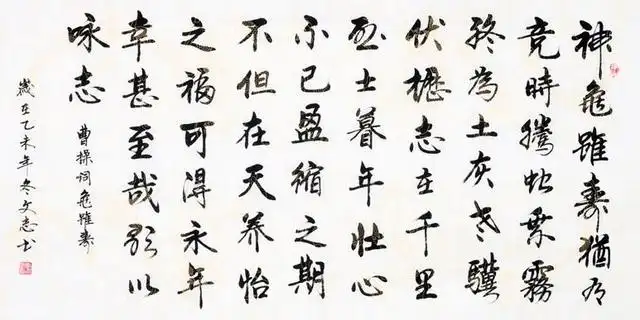 神龜雖壽猶有
竟時騰蛇乘霧
終為土灰老驥
伏櫪志在千里
烈士暮年壯心
不已盈縮之期
不但在天养怡
之福可得永年
幸甚至哉歌以
咏志
曹操词龜雖壽
歲在乙未年冬文志书